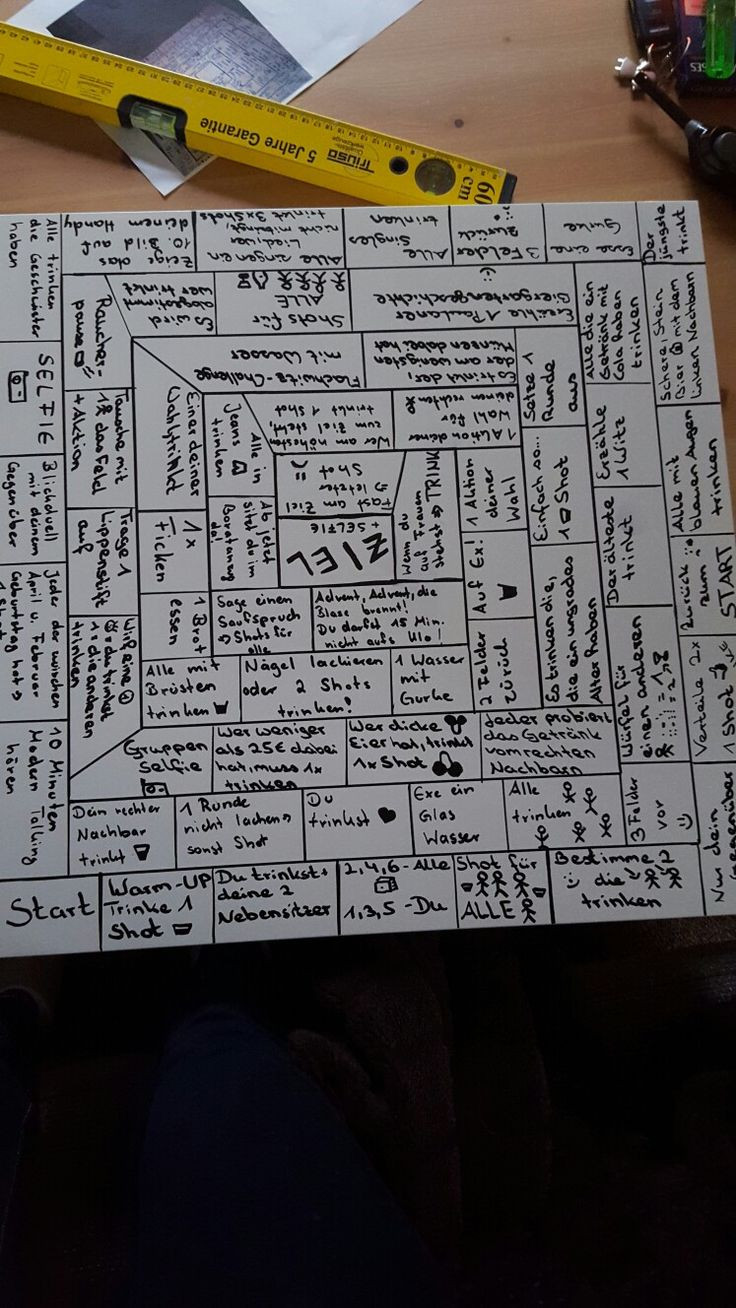 5 Jahre Garantie
TRIUSO
Qualitäts-
werkzeuge
60
cm
Start
Warm-UP
Trinke 1
Shot
Du trinkst+
deine 2
Nebensitzer
2,4,6-Alle
1,3,5-Du
Shot für
ALLE
Bestimme 2
die
trinken
Nur dein
gegenüber
1 Shot
Verteile 2x
Zurück
zum
START
Alle mit
blauen Augen
trinken
Schere, Stein
Bier mit dem
linken Nachbarn
Der
jüngste
trinkt
Exe eine
Gurke
3 Felder
zurück
Alle
Singles
trinken
Alle singen ein
Lied, wer
nicht mitsingt,
trinkt 3xShots
Zeige das
10. Bild auf
deinem Handy
Alle trinken
die Geschwister
haben
SELFIE
Blickduell
mit deinem
Gegenüber
Jeder der zwischen
April u. Februar
Geburtstag hat →
1 Shot
10 Minuten
Modern Talking
hören
Dein rechter
Nachbar
trinkt
1 Runde
nicht lachen→
sonst Shot
Du
trinkst
Exe ein
Glas
Wasser
Alle
trinken
3 Felder
vor
Würfel für
einen anderen
Der älteste
trinkt
Erzähle
1 Witz
Alle die ein
Getränk mit
Cola haben
trinken
Erzähle 1 Paulaner
Biergartengeschichte
Shots für
ALLE
Es wird
abgestimmt
wer trinkt
Raucher-
pause
Tausche mit
1 das Feld
+ Aktion
Trage 1
Lippenstift
auf
Wirf eine
du trinkst
1 = die anderen
trinken
Gruppen
selfie
Wer weniger
als 25€ dabei
hat, muss 1x
trinken
Wer dicke
Eier hat, trinkt
1x Shot
Jeder probiert
das Getränk
vom rechten
Nachbarn
Es trinken die,
die ein ungrades
Alter haben
Einfach so...
1 Shot
Setze 1
Runde
aus
Es trinkt der,
der am wenigsten
Münzen dabei hat
Flachwitz-Challenge
mit Wasser
Einer deiner
Wahl trinkt
1x
Ficken
1 Brot
essen
Alle mit
Brüsten
trinken
Nägel lackieren
oder 2 Shots
trinken!
1 Wasser
mit
Gurke
2 Felder
zurück
Auf Ex!
1 Aktion
deiner
Wahl
1 Aktion deiner
Wahl für
deinen rechten
Wer am nähesten
zum Ziel steht,
trinkt 1 Shot
Alle in
Jeans
trinken
Ab jetzt
sitzt du im
Boratanzug
da!
Sage einen
Saufspruch
→ Shots für
alle
Advent, Advent, die
Blase brennt!
Du darfst 15 Min.
nicht aufs Klo!
Wenn du
auf Frauen
stehst → TRINK
Fast am Ziel
→ letzter
Shot
ZIEL
+ SELFIE